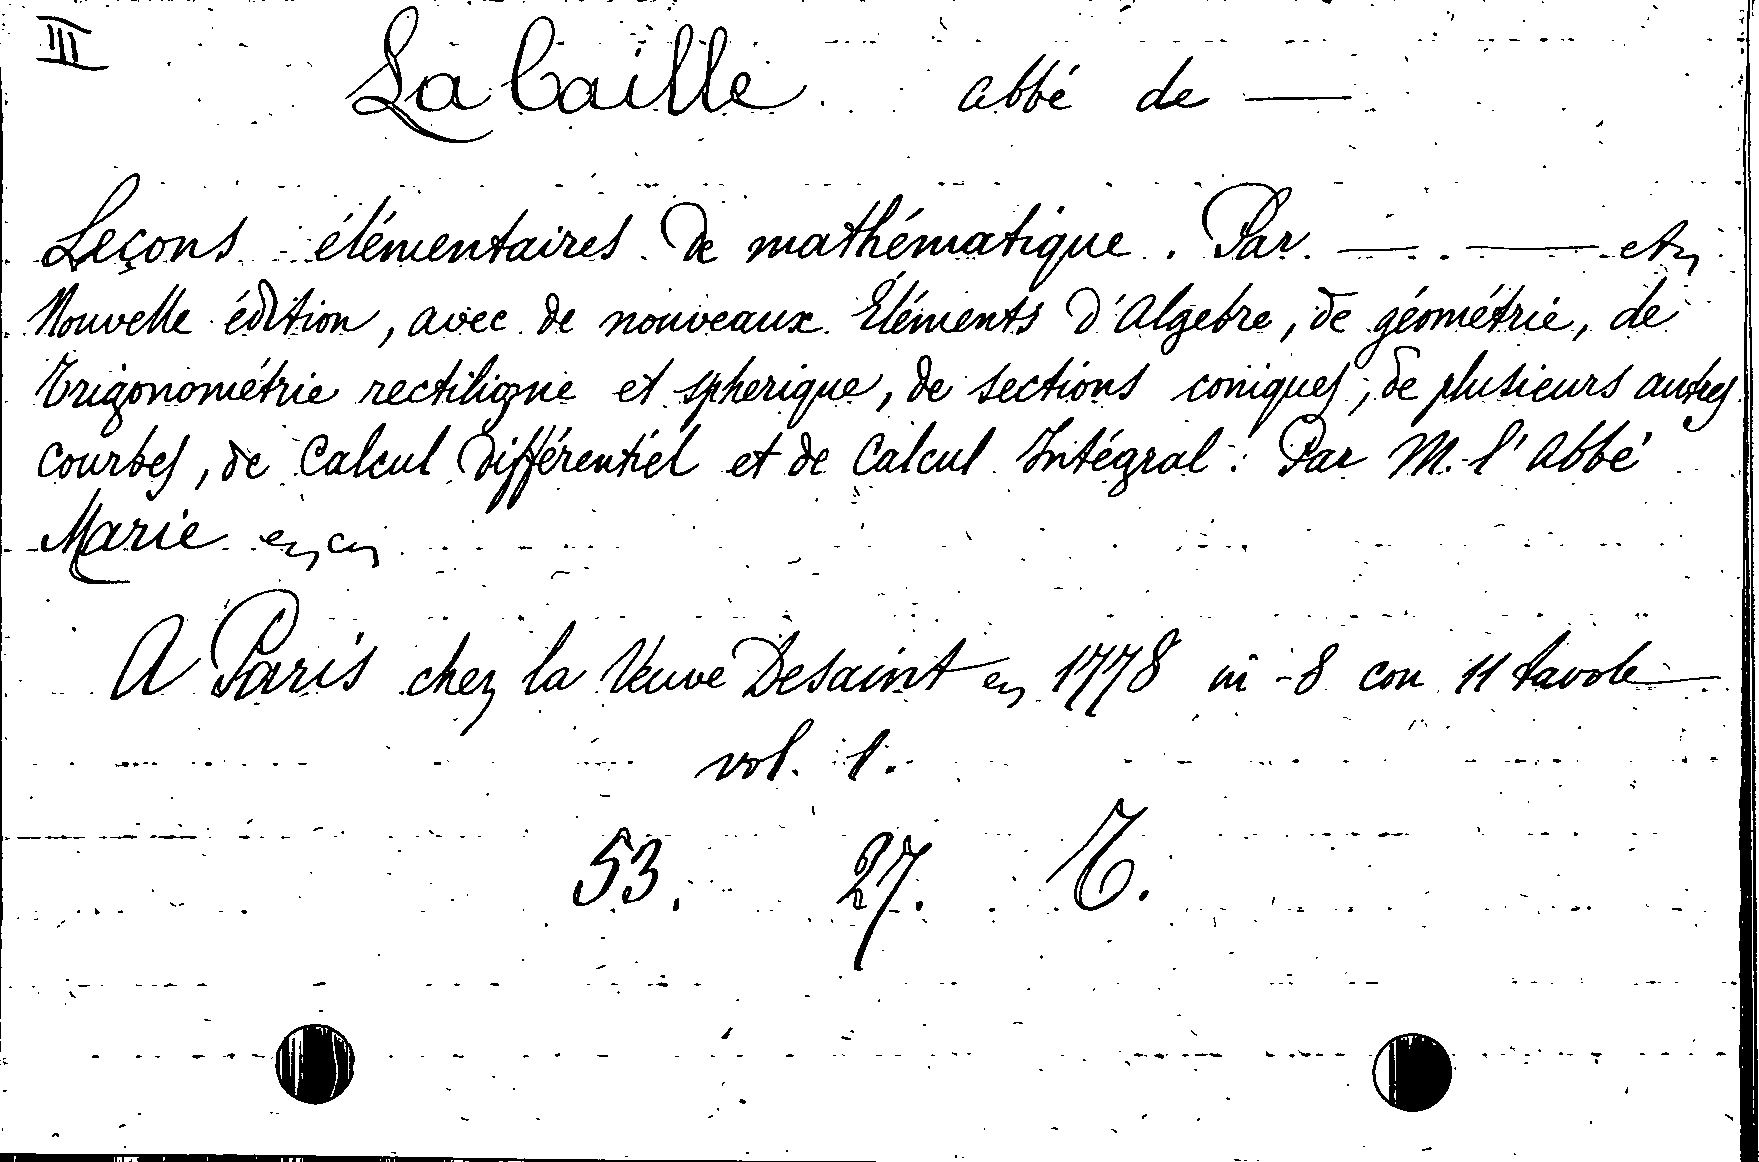 III
La Caille abbé de —
Leçons élémentaires de mathématique. Par — . — etc
Nouvelle édition, avec de nouveaux Eléments d'Algebre, de géométrie, de
Trigonométrie rectiligne et spherique, de sections coniques, de plusieurs autres
courbes, de Calcul différentiel et de Calcul Intégral: Par M. l'Abbé
Marie
A Paris chez la Veuve Desaint en 1778 in -8 con 11 tavole
vol. 1.
53. 27. C.